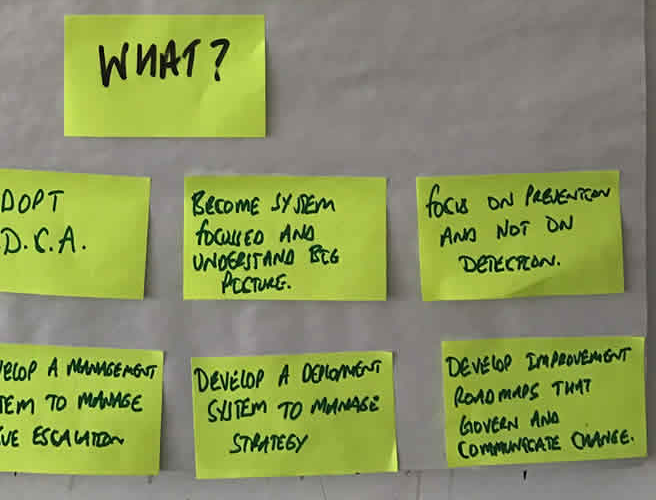 WHAT?
DOPT
D.C.A.
BECOME SYSTEM
FOCUSSED AND
UNDERSTAND BIG
PICTURE.
FOCUS ON PREVENTION
AND NOT ON
DETECTION.
VELOP A MANAGEMENT
TEM TO MANAGE
UE ESCALATION
DEVELOP A DEPLOYMENT
SYSTEM TO MANAGE
STRATEGY
DEVELOP IMPROVEMENT
ROADMAPS THAT
GOVERN AND
COMMUNICATE CHANGE.